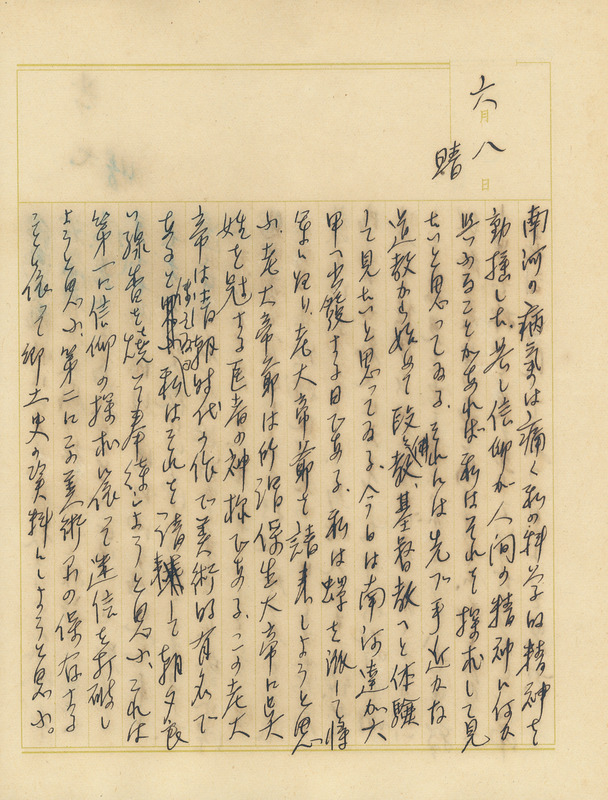 六月八日
晴
南河の病気は痛く私の科学的精神を
動揺した.若し信仰が人間の精神に何か
与ふることがあれば私はそれを探求して見
たいと思ってゐる.それには先づ手近かな
道教から始めて佛教基督教へと体験
して見たいと思ってゐる.今日は南河達が大
甲へ出發する日である.私は蟬を派して
軍に行り老大帝爺を請来しようと思
ふ.老大帝爺は所謂保生大帝に呉
姓を冠する医者の神様である.この老大
帝は清朝時代の作で美術的有名で
あると 私はそれを請来して朝夕長
い線香を焼いて奉待しようと思ふ.これは
第一に信仰の探求に依って迷信を打破し
ようと思ふ.第二にこの美術品の保存する
ことに依って郷土史の資料にしようと思ふ。